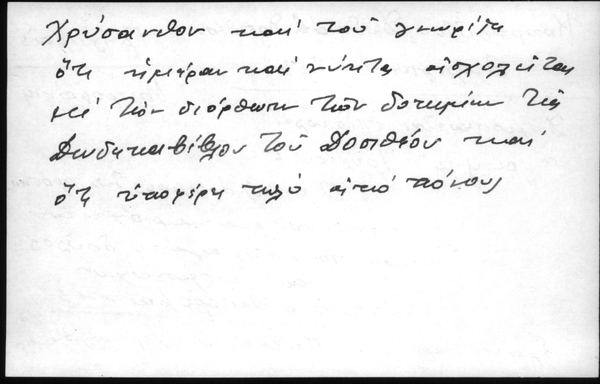 Χρύσανθον καί τοῦ γνωρίζει
ὅτι ἡμέραν καί νύκτα ἀσχολεῖται
μέ τήν διόρθωσιν τῶν δοκιμίων τῆς
Δωδεκαβίβλου τοῦ Δοσιθέου καί
ὅτι ὑποφέρει πολύ ἀπό πόνους